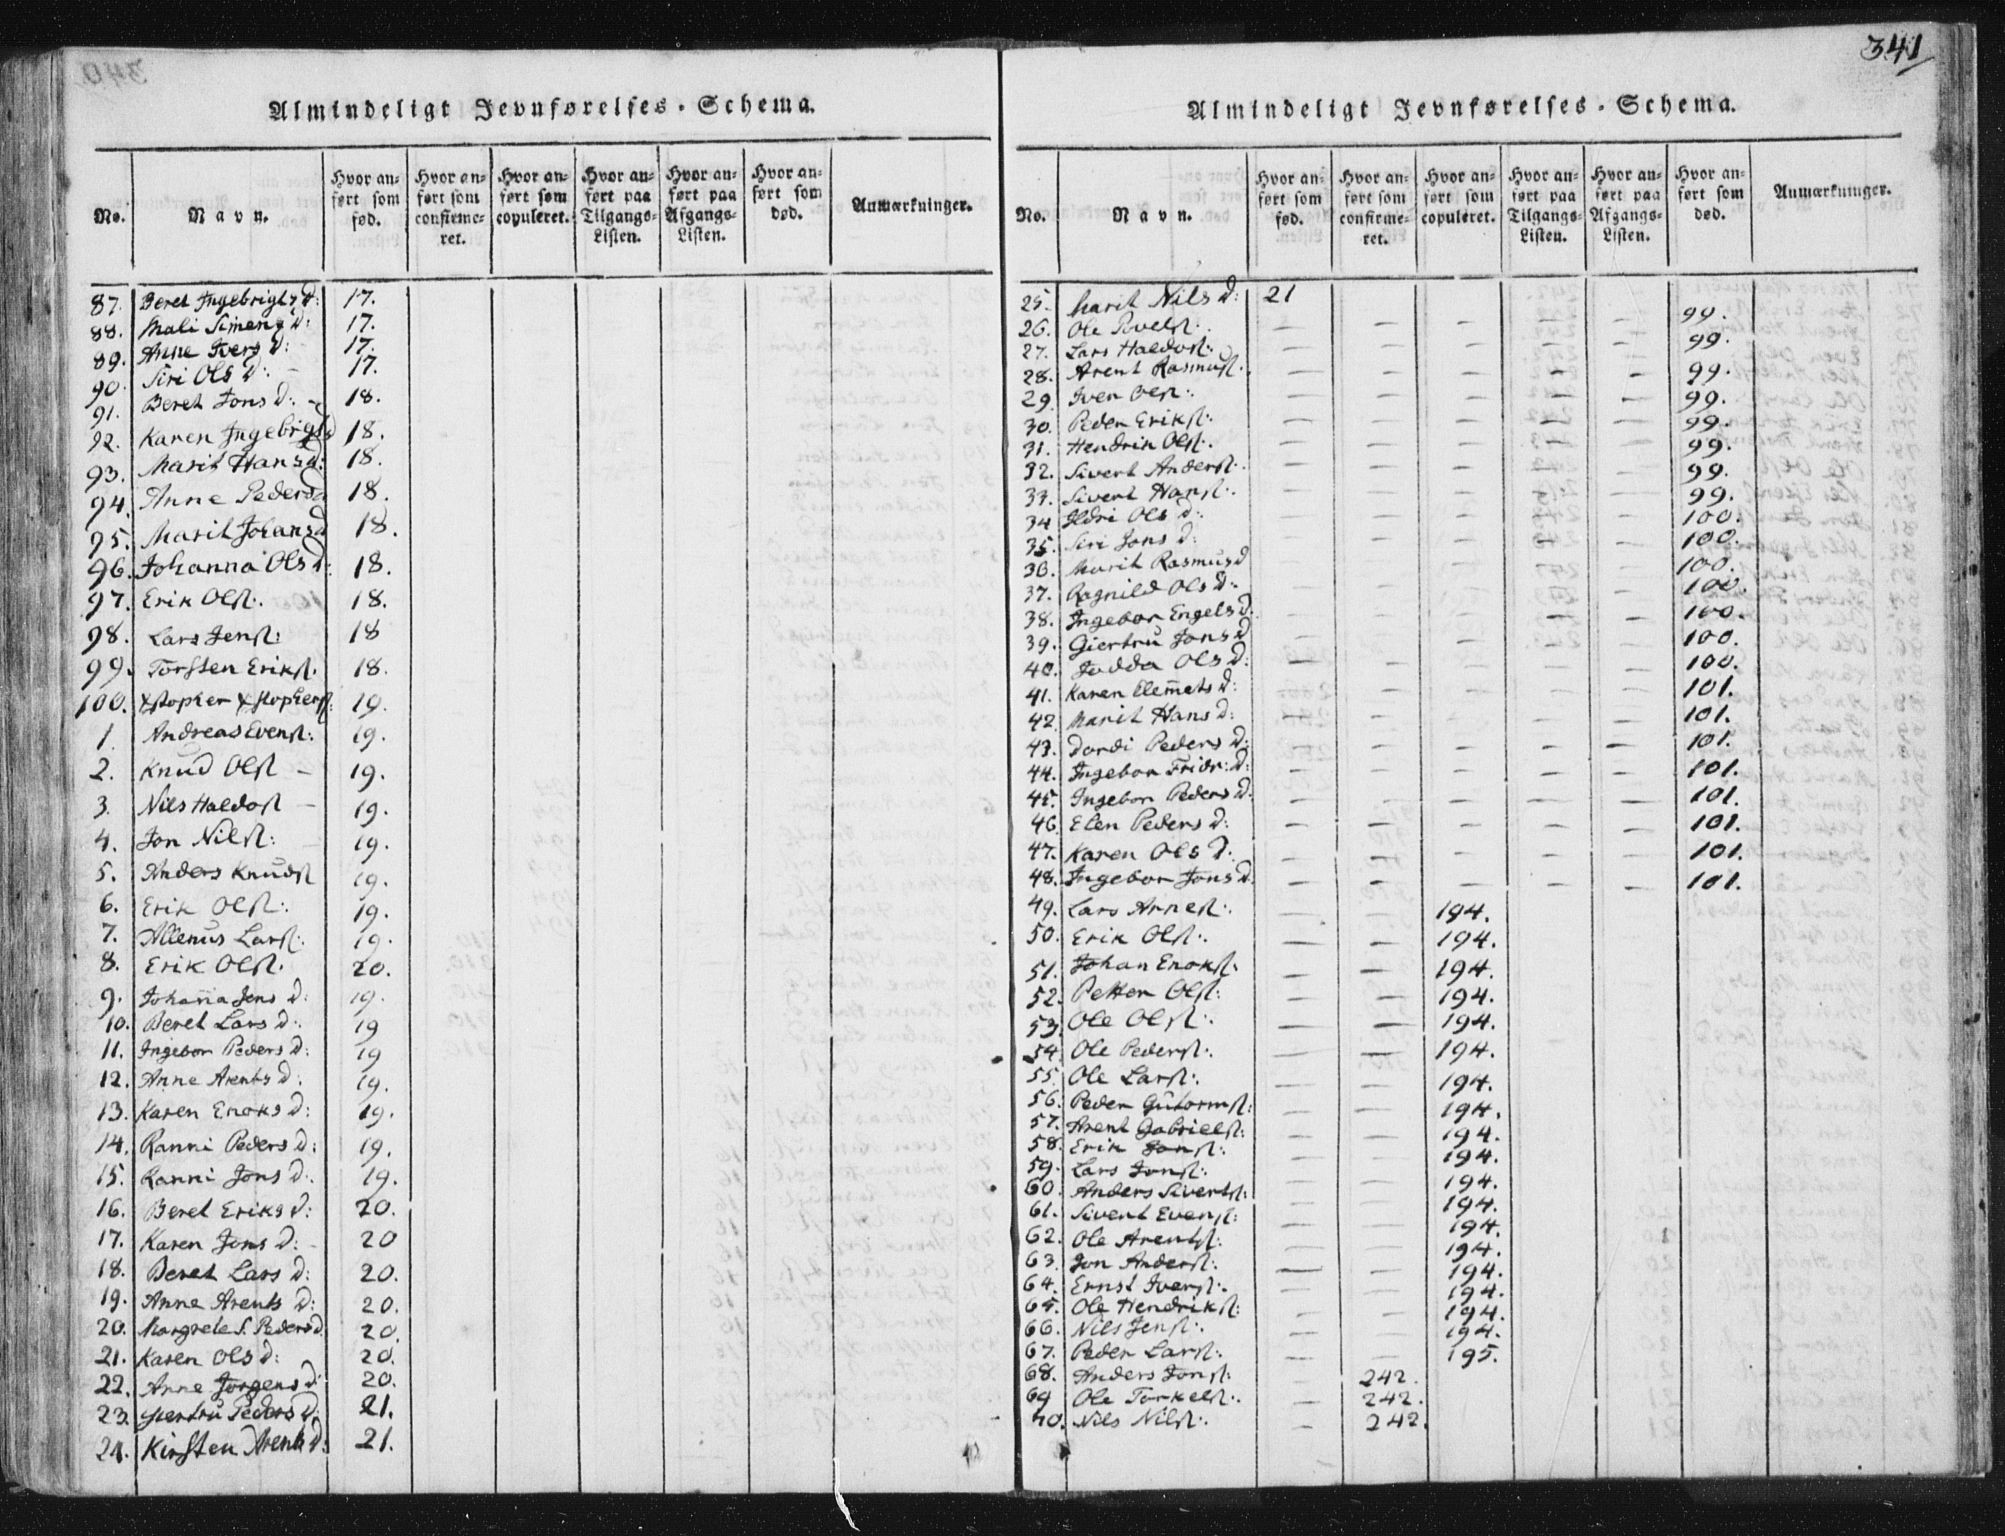 341
Almindeligt Jevnførelses-Schema.
No. Navn. Hvor anført som fød. Hvor anført som confirmeret. Hvor anført som copuleret. Hvor anført paa Tilgangs-Listen. Hvor anført paa Afgangs-Listen. Hvor anført som død. Anmærkninger.
87. Beret Ingebrigts d: 17.
88. Mali Simens d: 17.
89. Anne Ivers d: 17.
90. Siri Ols d: 17.
91. Beret Jons d: 18.
92. Karen Ingebrigts d 18.
93. Marit Hans d: 18.
94. Anne Peders d 18.
95. Marit Johans d 18.
96. Johanna Ols d: 18.
97. Erik Olſt: 18.
98. Lars Jenſt: 18
99. Torsten Erikſt. 18.
100. Xstopher Xstopherſt: 19.
1. Andreas Evenſt: 19.
2. Knud Olſt – 19.
3. Nils Haldoſt – 19.
4. Jon Nilſt: 19.
5. Anders Knudſt 19.
6. Erik Olſt: 19.
7. Allenus Larſt: 19.
8. Erik Olſt. 20.
9. Johanna Jens d: 19.
10. Beret Lars d: 19
11. Ingebor Peders d: 19
12. Anne Arents d. 19.
13. Karen Enoks d: 19.
14. Ranni Peders d: 19.
15. Ranni Jons d: 19.
16. Beret Eriks d: 20.
17. Karen Jons d: 20
18. Beret Lars d: 20.
19. Anne Arents d: 20.
20. Margrete S. Peders d. 20.
21. Karen Ols d: 20.
22. Anne Jorgens d 20.
23. Giertru Peders d: 21.
24. Kirsten Arents d: 21.
Almindeligt Jevnførelses-Schema.
No. Navn. Hvor anført som fød. Hvor anført som confirmeret. Hvor anført som copuleret. Hvor anført paa Tilgangs-Listen. Hvor anført paa Afgangs-Listen. Hvor anført som død. Anmærkninger.
25. Marit Nils d: 21
26. Ole – – – – – 99.
27. Lars Haldoſt: – – – – – 99.
28. Arent Rasmuſt. – – – – – 99.
29. Iver Olſt: – – – – – 99.
30. Peder Erikſt: – – – – – 99.
31. Hendrik Olſt. – – – – – 99.
32. Sivert Anderſt. – – – – – 99.
33. Sivert Hanſt. – – – – – 99.
34 Ildri Ols d: – – – – – 100.
35. Siri Jons d: – – – – – 100.
36. Marit Rasmus d – – – – – 100.
37. Ragnild Ols d: – – – – – 100.
38. Ingebor Engels d. – – – – – 100.
39. Giertru Jons d – – – – – 100.
40. Jodda Ols d: – – – – – 100.
41. Karen Clemets d: – – – – – 101.
42. Marit Hans d: – – – – – 101.
43. Dordi Peders d: – – – – – 101.
44. Ingebor Fridr: d: – – – – – 101.
45. Ingebor Peders d. – – – – – 101.
46. Elen Peders d: – – – – – 101.
47. Karen Ols d: – – – – – 101.
48. Ingebor Jons d. – – – – – 101.
49. Lars Arneſt: – – 194.
50. Erik Olſt: – – 194.
51. Johan Enokſt. – – 194.
52. Petter Olſt: – – 194.
53. Ole Olſt: – – 194.
54. Ole Pederſt: – – 194.
55. Ole Larſt: – – 194.
56. Peder Gutormſt: – – 194.
57. Arent Gabrielſt: – – 194.
58. Erik Jonſt: – – 194.
59. Lars Jonſt: – – 194.
60. Anders Sivertſt: – – 194.
61. Sivert Evenſt: – – 194.
62. Ole Arentſt: – – 194.
63. Jon Anderſt: – – 194.
64. Ernst Iverſt: – – 194.
65. Ole Hendrikſt: – – 194.
66. Nils Jenſt: – – 194.
67. Peder Larſt: – – 195.
68. Anders Jonſt: – 242.
69 Ole Torkelſt: – 242.
70. Nils Nilſt: – 242.